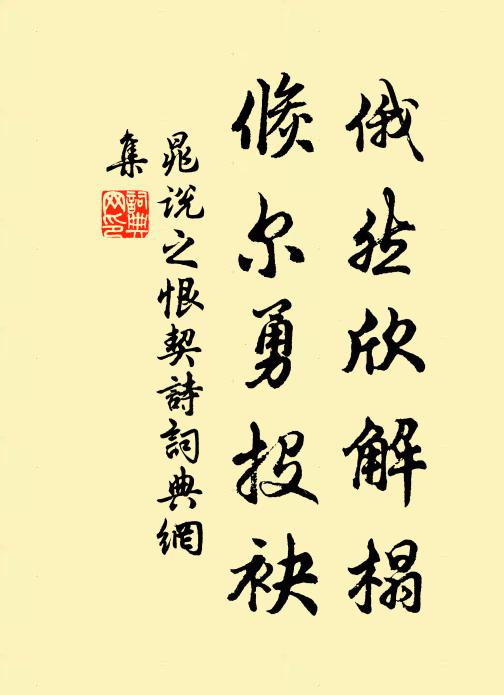 俄然欣解榻
倏尔勇投袂
晁说之恨契詩詞典網
集
詞典網印